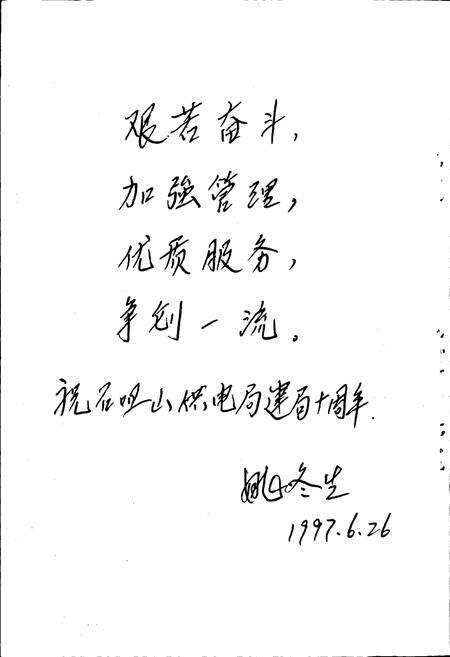 艰苦奋斗，
加强管理，
优质服务，
争创一流。
祝石咀山供电局建局十周年.
姚冬生
1997.6.26